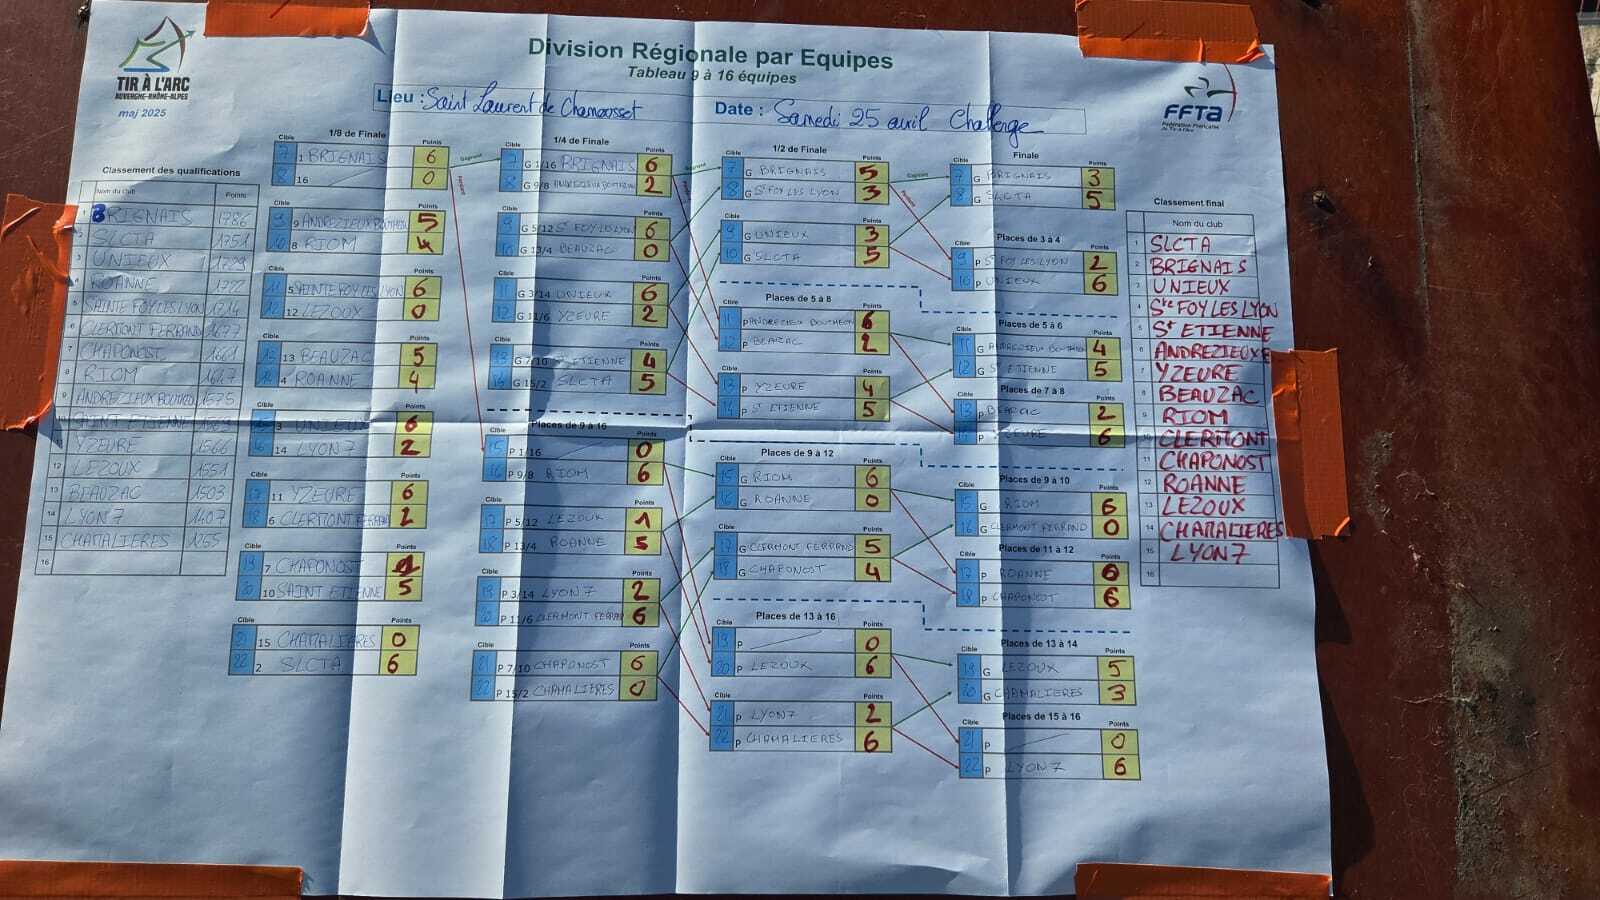 TIR À L'ARC
AUVERGNE-RHÔNE-ALPES
maj 2025
Division Régionale par Equipes
Tableau 9 à 16 équipes
Lieu : Saint Laurent de Chamousset
Date : Samedi 25 avril Challenge
FFTA
Fédération Française
de Tir à l'Arc
Classement des qualifications
Nom du club Points
1 BRIGNAIS 1786
2 SLCTA 1751
3 UNIEUX 1729
4 ROANNE 1722
5 SAINTE FOY LES LYON 1714
6 CLERMONT FERRAND 1677
7 CHAPONOST 1661
8 RIOM
9 ANDREZIEUX BOUTHEON 1575
SAINT ETIENNE
11 YZEURE 1566
12 LEZOUX 1551
13 BEAUZAC 1503
14 LYON 7 1407
15 CHAMALIERES 1255
16
1/8 de Finale
Cible Points
7 1 BRIGNAIS 6
8 16 0
9 9 ANDREZIEUX BOUTHEON 5
10 8 RIOM 4
Cible Points
11 5 SAINTE FOY LES LYON 6
12 12 LEZOUX 0
Cible Points
13 13 BEAUZAC 5
14 4 ROANNE 4
Cible Points
15 3 UNIEUX 6
16 14 LYON 7 2
Cible Points
17 11 YZEURE 6
18 6 CLERMONT FERRAND 2
Cible Points
19 7 CHAPONOST
20 10 SAINT ETIENNE 5
Cible Points
21 15 CHAMALIERES 0
22 2 SLCTA 6
Gagnant
Perdant
1/4 de Finale
Cible Points
7 G 1/16 BRIGNAIS 6
8 G 9/8 ANDREZIEUX BOUTHEON 2
Cible Points
9 G 5/12 St FOY LES LYON 6
10 G 13/4 BEAUZAC 0
Cible Points
11 G 3/14 UNIEUX 6
12 G 11/6 YZEURE 2
Cible Points
13 G 7/10 St ETIENNE 4
14 G 15/2 SLCTA 5
Places de 9 à 16
Cible Points
15 P 1/16 0
16 P 9/8 RIOM 6
Cible Points
17 P 5/12 LEZOUX 1
18 P 13/4 ROANNE 5
Cible Points
19 P 3/14 LYON 7 2
20 P 11/6 CLERMONT FERRAND 6
Cible Points
21 P 7/10 CHAPONOST 6
22 P 15/2 CHAMALIERES 0
1/2 de Finale
Cible Points
7 G BRIGNAIS 5
8 G St FOY LES LYON 3
Cible Points
9 G UNIEUX 3
10 G SLCTA 5
Places de 5 à 8
Cible Points
11 P ANDREZIEUX BOUTHEON 6
12 P BEAUZAC 2
Cible Points
13 P YZEURE 4
14 P St ETIENNE 5
Places de 9 à 12
Cible Points
15 G RIOM 6
16 G ROANNE 0
Cible Points
17 G CLERMONT FERRAND 5
18 G CHAPONOST 4
Places de 13 à 16
Cible Points
19 P 0
20 P LEZOUX 6
Cible Points
21 P LYON 7 2
22 P CHAMALIERES 6
Gagnant
Perdant
Finale
Cible Points
7 G BRIGNAIS 3
8 G SLCTA 5
Places de 3 à 4
Cible Points
9 P St FOY LES LYON 2
10 P UNIEUX 6
Places de 5 à 6
Cible Points
11 G ANDREZIEUX BOUTHEON 4
12 G St ETIENNE 5
Places de 7 à 8
Cible Points
13 P BEAUZAC 2
14 P YZEURE 6
Places de 9 à 10
Cible Points
15 G RIOM 6
16 G CLERMONT FERRAND 0
Places de 11 à 12
Cible Points
17 P ROANNE
18 P CHAPONOST 6
Places de 13 à 14
Cible Points
19 G LEZOUX 5
20 G CHAMALIERES 3
Places de 15 à 16
Cible Points
21 P 0
22 P LYON 7 6
Classement final
Nom du club
1 SLCTA
2 BRIGNAIS
3 UNIEUX
4 Ste FOY LES LYON
5 St ETIENNE
6 ANDREZIEUX
7 YZEURE
8 BEAUZAC
9 RIOM
10 CLERMONT
11 CHAPONOST
12 ROANNE
13 LEZOUX
14 CHAMALIERES
15 LYON 7
16